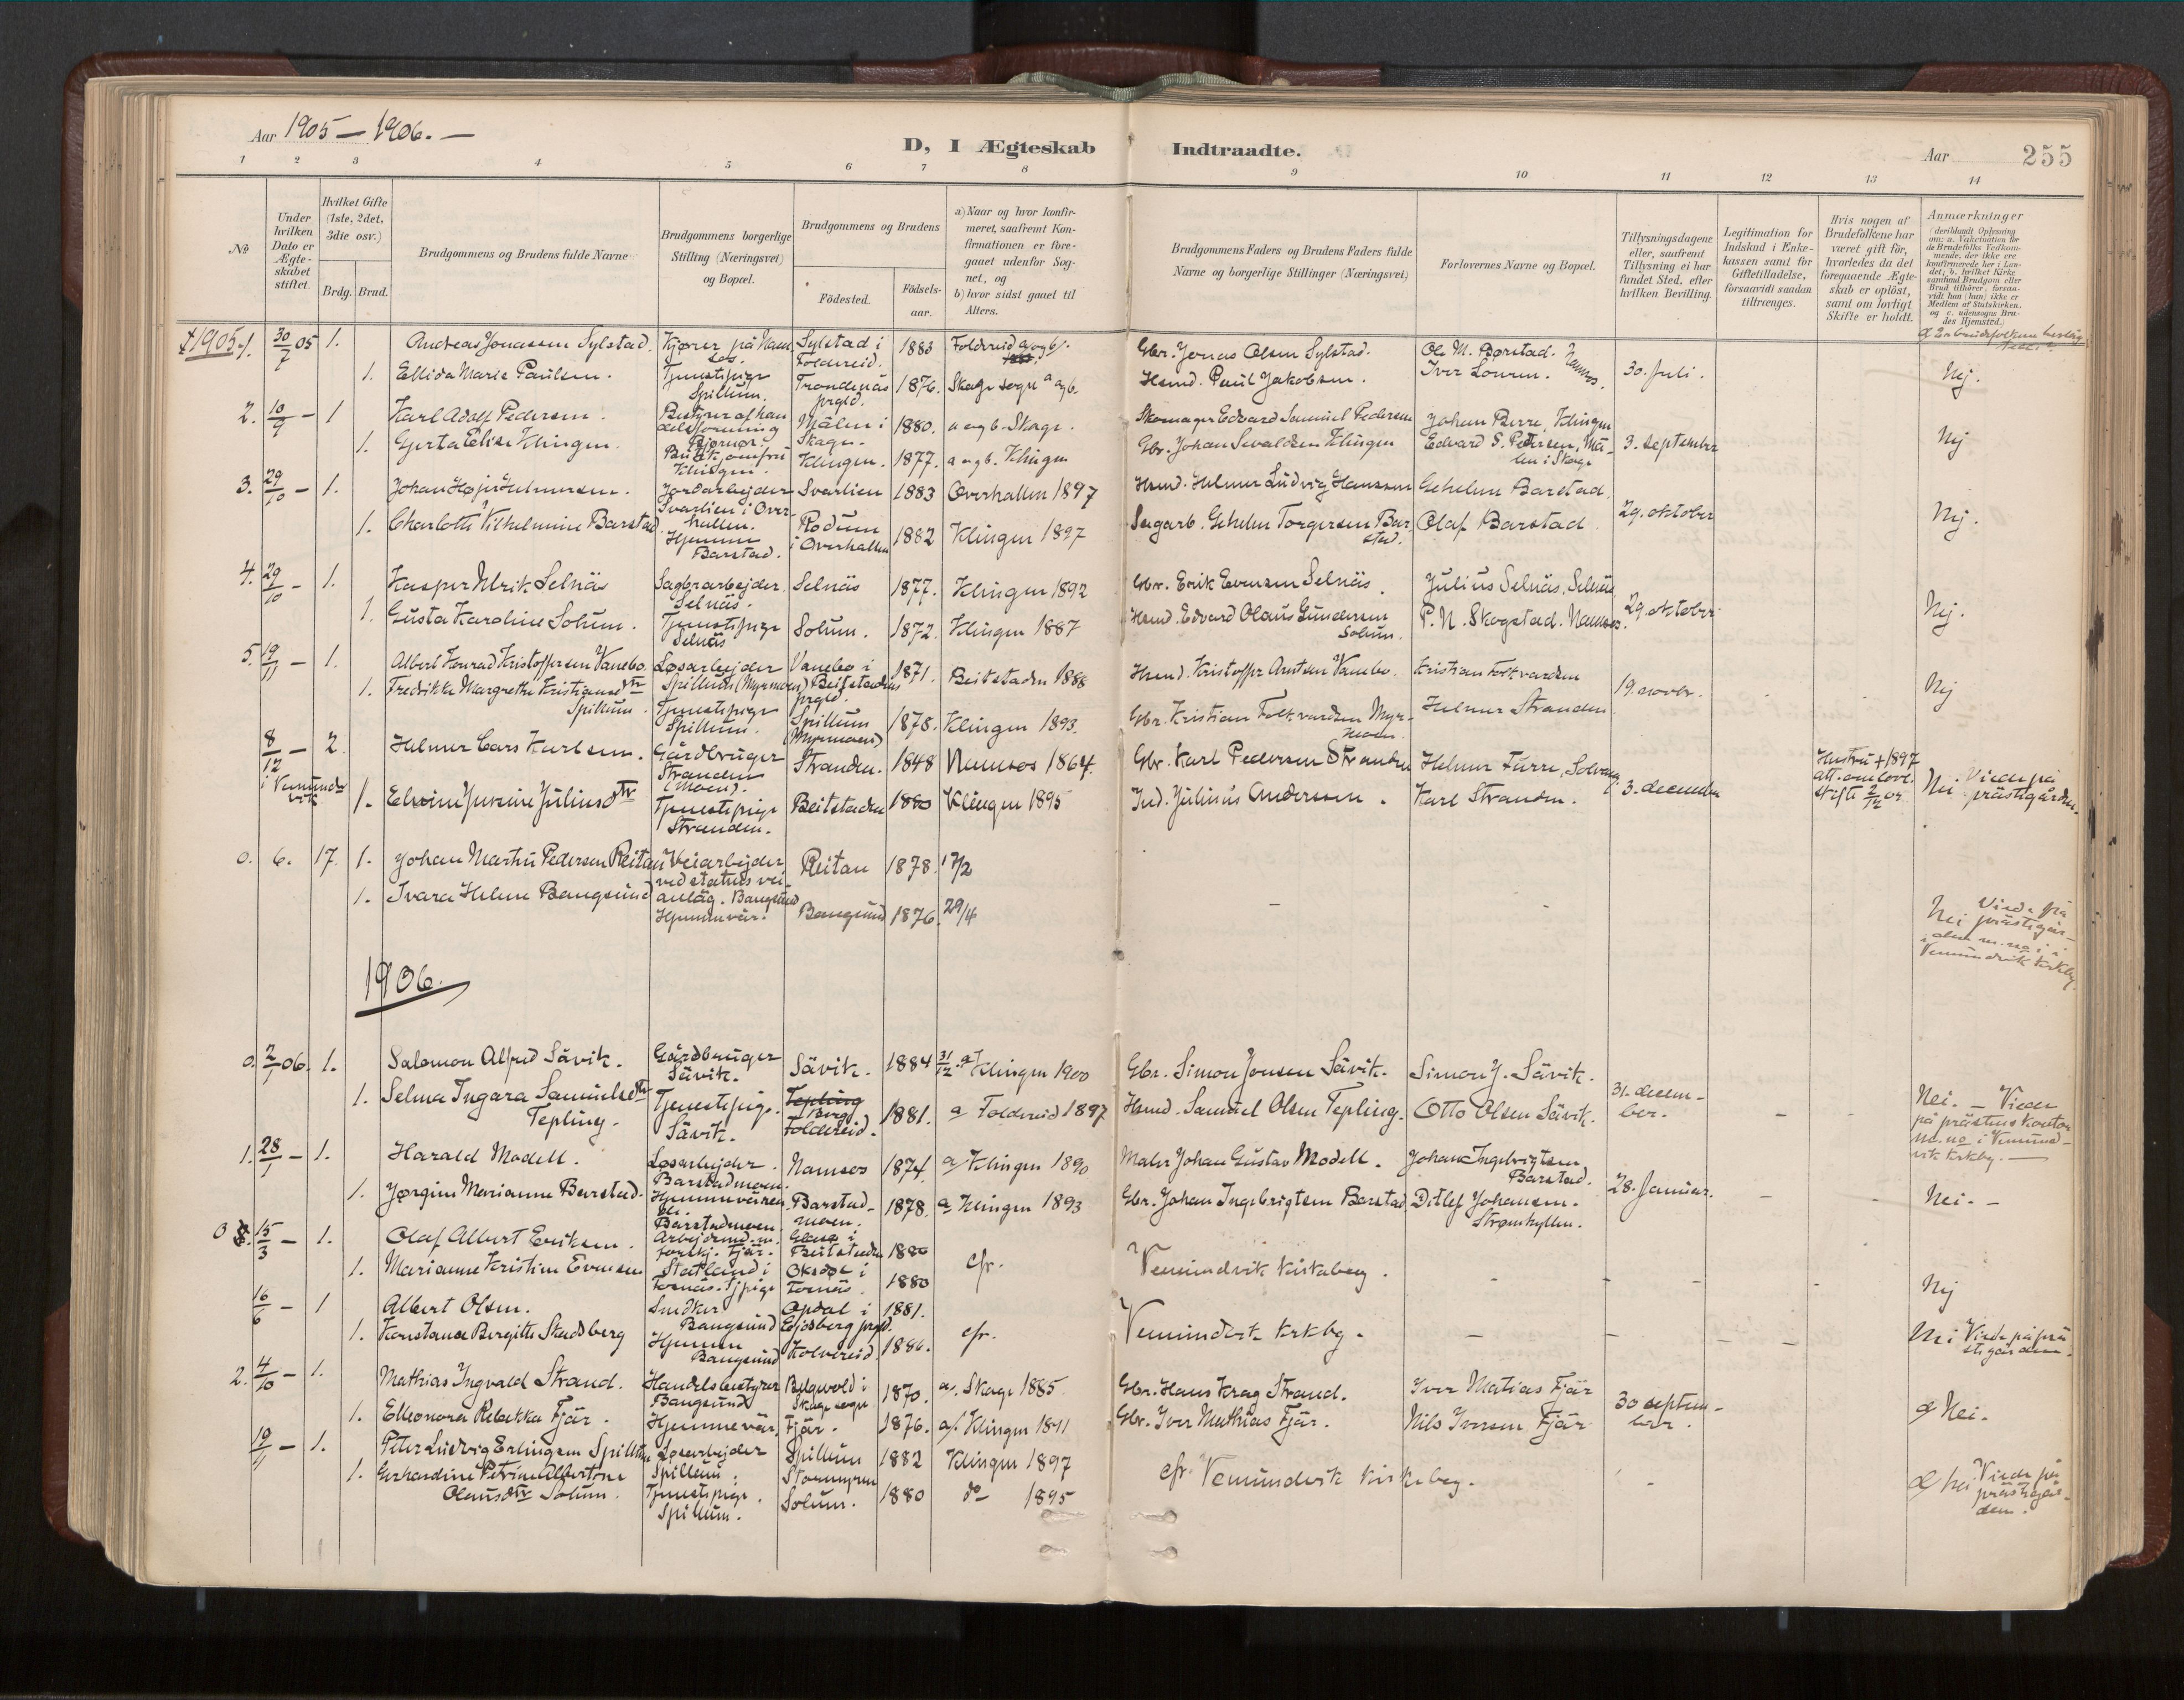 Aar 1905 — 1906. —
D, I Ægteskab Indtraadte.
Aar 255
1 2 3 4 5 6 7 8 9 10 11 12 13 14
No
Under hvilken Dato er Ægteskabet stiftet.
Hvilket Gifte (1ste, 2det, 3die osv.)
Brdg. Brud.
Brudgommens og Brudens fulde Navne
Brudgommens borgerlige Stilling (Næringsvei) og Bopæl.
Brudgommens og Brudens
Fødested.
Fødsels-aar.
a) Naar og hvor konfirmeret, saafremt Konfirmationen er foregaaet udenfor Sognet, og
b) hvor sidst gaaet til Alters.
Brudgommens Faders og Brudens Faders fulde Navne og borgerlige Stillinger (Næringsvei)
Forlovernes Navne og Bopæl.
Tillysningsdagene eller, saafremt Tillysning ei har fundet Sted, efter hvilken Bevilling.
Legitimation for Indskud i Enkekassen samt for Giftetilladelse, forsaavidt saadan tiltrænges.
Hvis nogen af Brudefolkene har været gift før, hvorledes da det foregaaende Ægteskab er opløst, samt om lovligt Skifte er holdt.
Anmærkninger (deriblandt Oplysning om: a. Vakcination for de Brudefolks Vedkommende, der ikke ere konfirmerede her i Landet; b. hvilket Kirkesamfund Brudgom eller Brud tilhører, forsaavidt han (hun) ikke er Medlem af Statskirken, og c. udensogns Brudes Hjemsted.)
1905 1. 30/7 05 1. Andreas Jonassen Sylstad. Kjører på Namsos. Sylstad i Foldereid. 1883 Foldereid a og b. Gbr. Jonas Olsen Sylstad. Ole M. Børstad. Namsos.
1. Ellida Marie Paulsen. Tjenestepige Spillum. Trondenäs prgld. 1876. Skage sogn a og b. Hsmd. Paul Jakobsen. Iver Louren. 30. Juli. Nej.
2. 10/9 — 1 Karl Adolf Pedersen. Bestyrer af handelsforening Bjørnør. Mälen i Skage. 1880. a og b. Skage. Skomager Edvard Samuel Pedersen Johan Birre, Klingen
1. Gjerta Elise Klingen. Butikjomfru Klingen. Klingen. 1877. a og b. Klingen Gbr. Johan Sevaldsen Klingen Edvard S. Pedersen, Mälen i Skage 3. september Nej
3. 29/10 — 1. Johan Højer Helmersen. Jordarbejder Svarlien i Overhallen. Svarlien 1883 Overhallen 1897 Hsmd. Helmer Ludvig Hanssen Gehelm Barstad.
1. Charlotte Vilhelmine Barstad. Hjemme Barstad. Rodum i Overhallen 1882 Klingen 1897 Sagarb. Gehelm Torgersen Barstad. Olaf Barstad 29. oktober Nej.
4. 29/10 — 1. Kasper Ulrik Selnäs Sagbrarbejder Selnäs. Selnäs 1877. Klingen 1892 Gbr. Erik Evensen Selnäs. Julius Selnäs, Selnäs
1. Gusta Karoline Solum. Tjenestepige Selnäs Solum. 1872. Klingen 1887 Hsmd. Edvard Olaus Gundersen Solum. P. N. Skogstad. Namsos. 29. oktober Nej.
5. 19/11 — 1. Albert Konrad Kristoffersen Vanebo. Løsarbejder Spillum (Myrmoen) Vanebo i Beitstadens prgld. 1871. Beitstaden 1888 Hsmd. Kristoffer Arntsen Vanebo. Kristian Folkvardsen
1. Fredrikke Margrethe Kristiansdtr Spillum. Tjenestepige Spillum. Spillum (Myrmoen) 1878. Klingen 1893. Gbr. Kristian Folkvardsen Myrmoen. Helmer Stranden 19. novbr. Nej
8/12 — i Vemundvik 2. Helmer Lars Karlsen. Gårdbruger Stranden (Moen). Stranden. 1848 Namsos 1864. Gbr. Karl Pedersen Stranden Helmer Furre, Solvang.
1. Edvine Jensine Juliusdtr Tjenestepige Stranden. Beitstaden 1880 Klingen 1895 Ind. Julius Andersen. Karl Stranden. 3. december Hustru + 1897 att. om lovl. skifte 2/12 05 Nei. Viede på prästegården.
0. 6. 17. 1. Johan Martin Pedersen Reitan Veiarbejder ved statens veianläg. Bangsund Reitan 1878. 17/2
1. Ivara Helene Bangsund Hjemmevär. Bangsund 1876. 29/4 — — Nei Viede på prästegården m. no. i Vemundvik kirkbg.
1906.
0. 2/1 06. 1. Salomon Alfred Sävik. Gårdbruger Sävik. Sävik. 1884 31/12 a/ Klingen 1900 Gbr. Simon Jonsen Sävik. Simon J. Sävik.
1. Selma Ingara Samuelsdtr Tepling. Tjenestepige. Sävik. Tepling Berg Foldereid. 1881. a Foldereid 1897 Hsmd. Samuel Olsen Tepling. Otto Olsen Sävik. 31. december. — — Nei. — Viede på prästens kontor m. no i Vemundvik kirkbg. —
1. 28/1 — 1. Harald Modell. Løsarbejder. Barstadmoen. Namsos 1874. a/ Klingen 1890 Maler Johan Gustav Modell. Johan Ingebrigtsen Barstad.
1. Jørgine Marianne Barstad. Hjemmeværende. Barstadmoen Barstadmoen. 1878. a Klingen 1893 Gbr. Johan Ingebrigtsen Barstad Ditlef Johansen. Strømhyllen. 28. Januar. — — Nei. —
0 15/3 — 1. Olaf Albert Eriksen. Arbejdsmd. m. forskj. Fjär. i Beitstaden 1880
1. Marianne Kristine Evensen Statland i Fosnäs. Tjpige Oksdøl i Fosnäs. 1880 cfr. Vemundvik kirkebog. — — — — Nej
16/6 — 1 Albert Olsen. Snedker Bangsund Opdal i prgld. 1881.
1. Konstance Bergitte Skadsberg Hjemme Bangsund Kolvereid. 1886. cfr. Vemundvik kirkbg. — — — — Nei Viede på prästegården.
2. 4/10 — 1. Mathias Ingvald Strand. Handelsbestyrer Bangsund i Skage sogn 1870. a/. Skage 1885. Gbr. Hans Krag Strand. Iver Matias Fjär
1. Elleonora Rebekka Fjär. Hjemmevär. Fjär. 1876. a/. Klingen 1891 Gbr. Iver Mathias Fjär. Nils Iversen Fjär 30 september. d Nei.
19/11 — 1. Peter Ludvig Erlingsen Spillum Løsarbejder Spillum. Spillum Stormyren 1882 Klingen 1897
1. Gerhardine Petrine Albertine Olausdtr Solum. Tjenestepige. Spillum. Solum. 1880 do 1895 cfr. Vemundvik kirkebog. — d/ Nei Viede på prästegården.